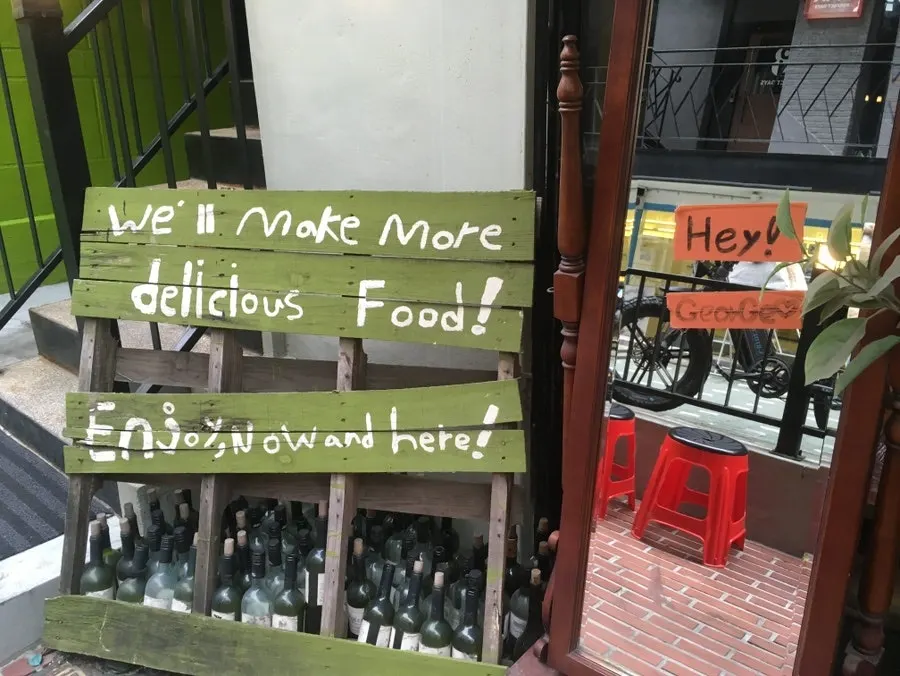 we'll Make More
delicious Food!
Enjoy, Now and here!
Hey!